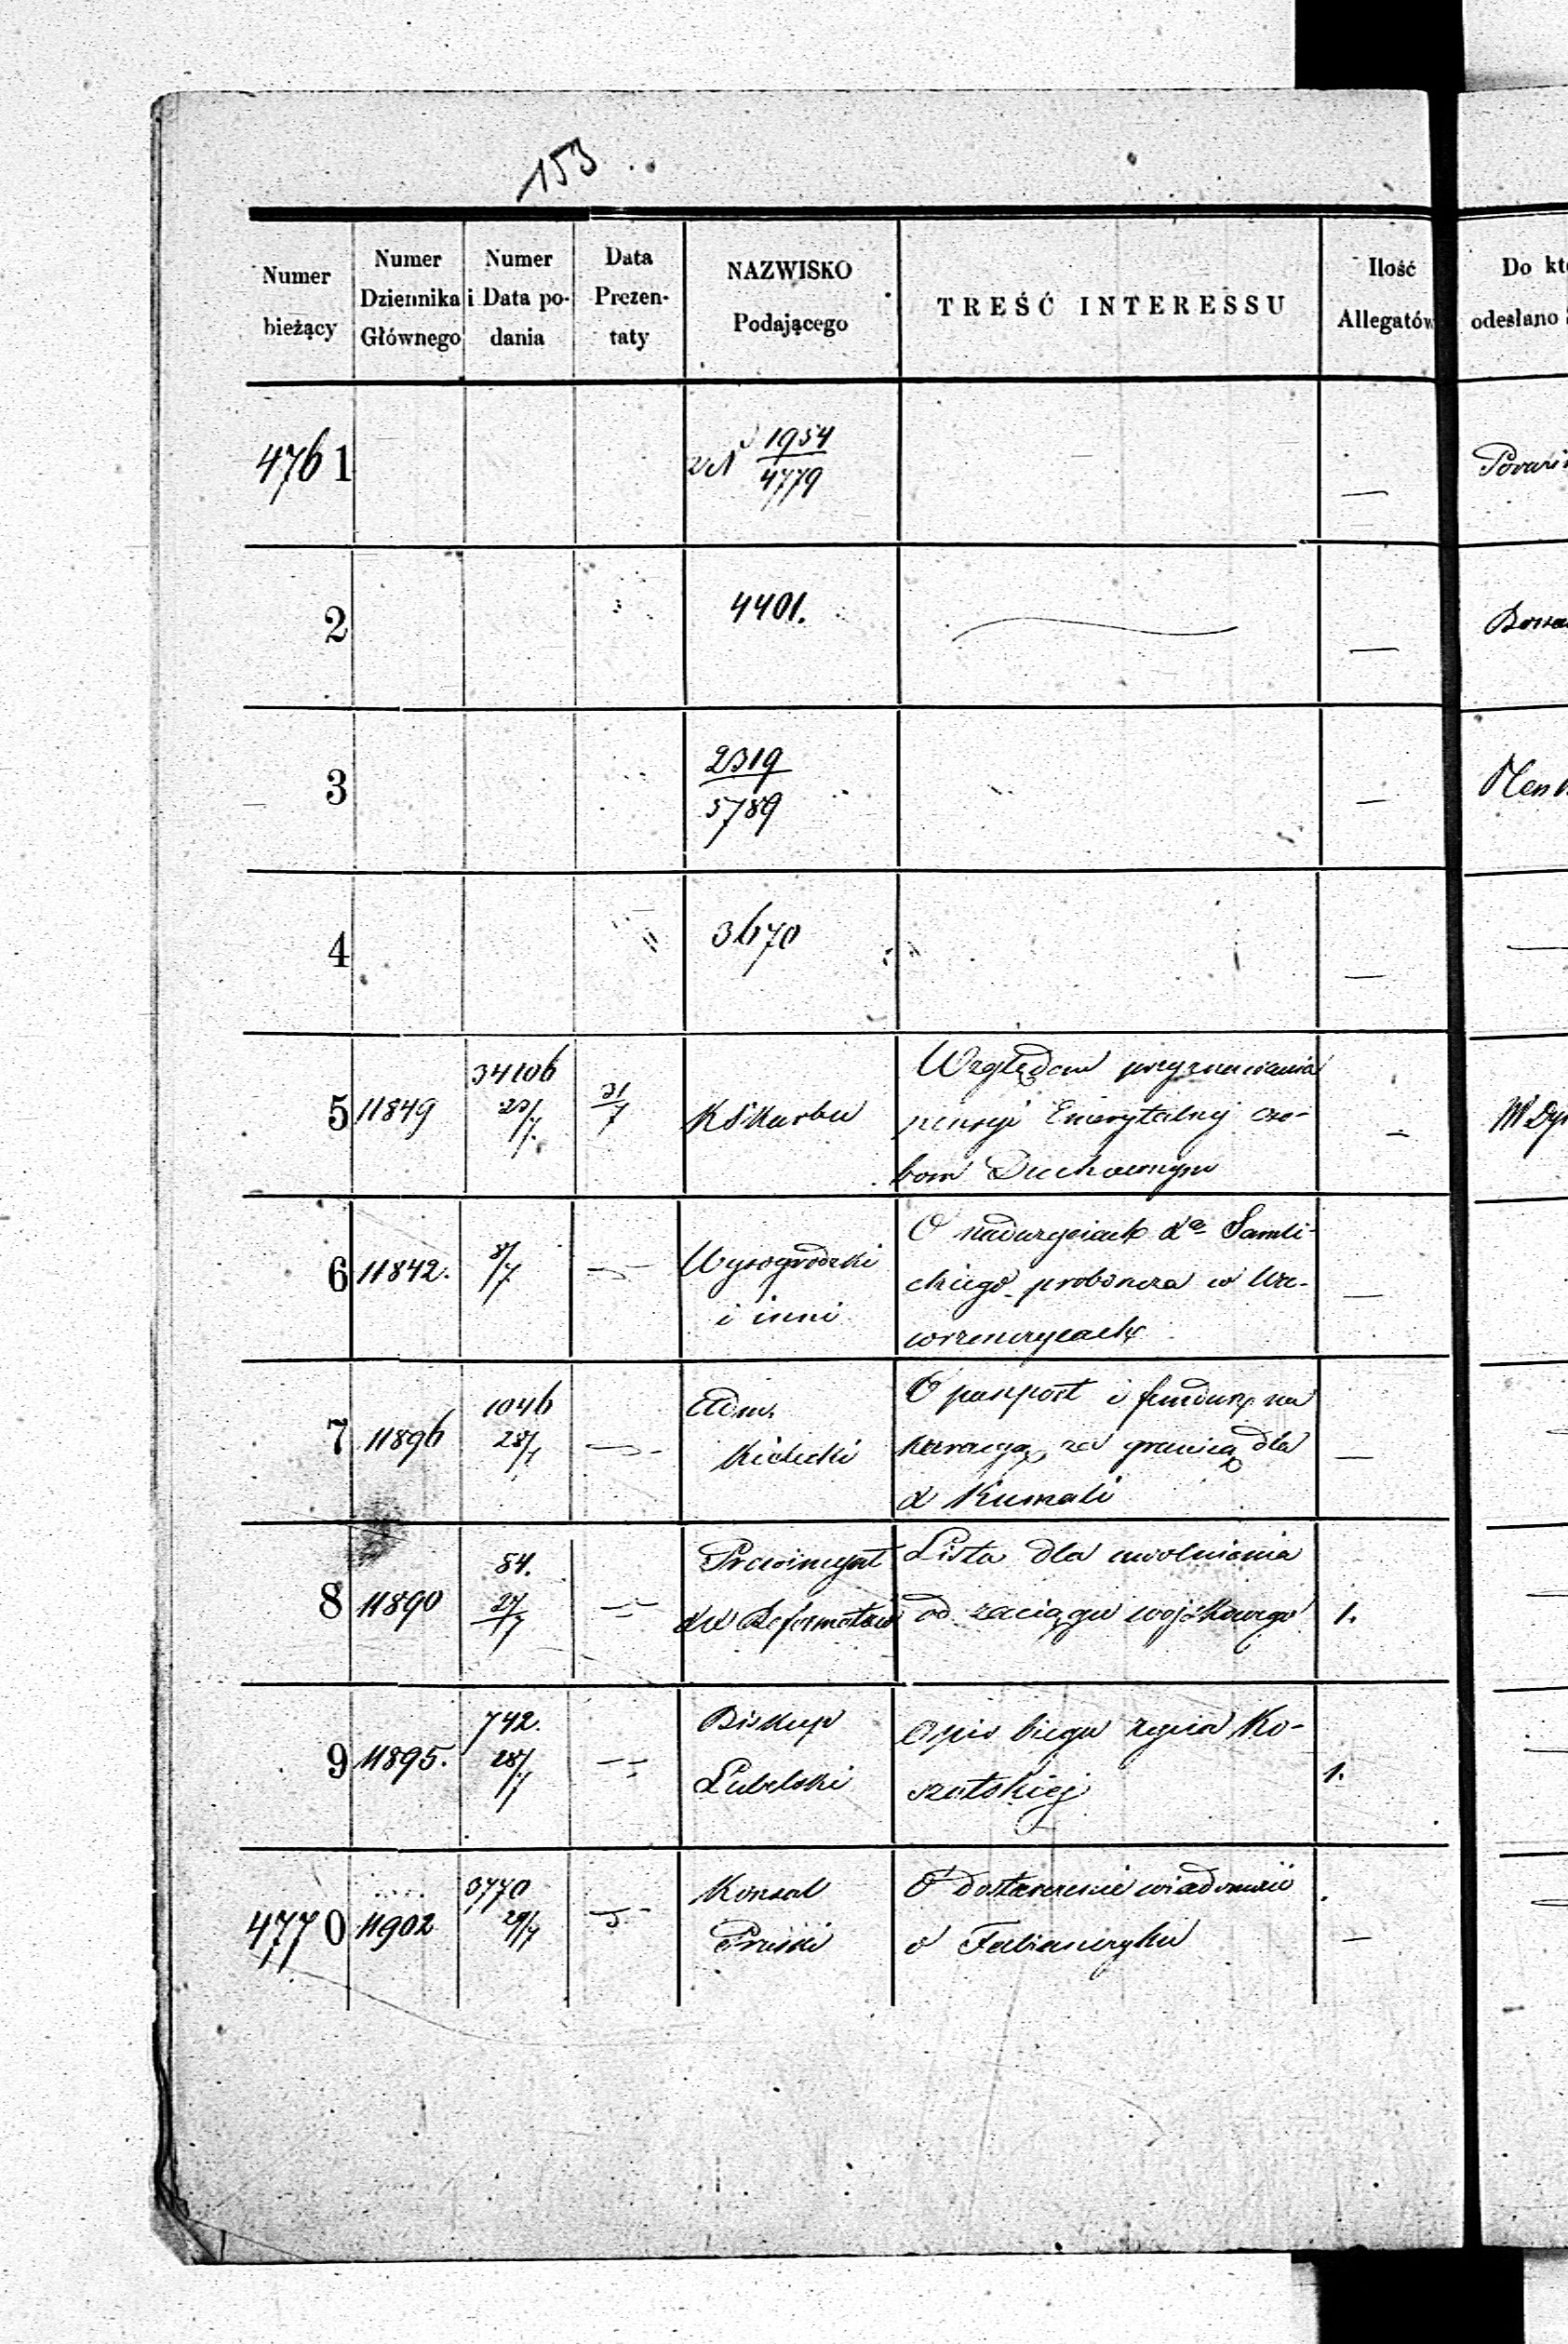 153
Numer bieżący
Numer Dziennika Głównego
Numer i Data podania
Data Prezentaty
NAZWISKO Podającego
TREŚĆ INTERESSU
Ilość Allegatów
Do kt
odesłano
4761
1954
4779
—
2
4401.
—
3
2319
5789
—
4
3670
—
5
11849
34106
23/7.
31/7
KSkarbu
Względem przyznawania
pensyi Emerytalnej oso-
bom Duchownym
—
6
11842.
8/7
Wysogrodzki
i inni
O nadużyciach
proboszcza w Wa-
wrzenczycach
—
7
11896
1046
28/7
Adm.
Kielecki
O paszport i fundusz na
kuracyą za granicą dla
X Kumali
—
8
11890
84.
27/7
Prowincyał
XX Reformatów
Lista dla uwolnienia
od zaciągu wojskowego
1.
9
11895.
742.
28/7
Biskup
Lubelski
Opis biegu życia Ko-
szutskiej
1.
4770
11902
3770
29/7
Konsul
Pruski
O dostarczenie wiadomości
o Fabianczyku
—